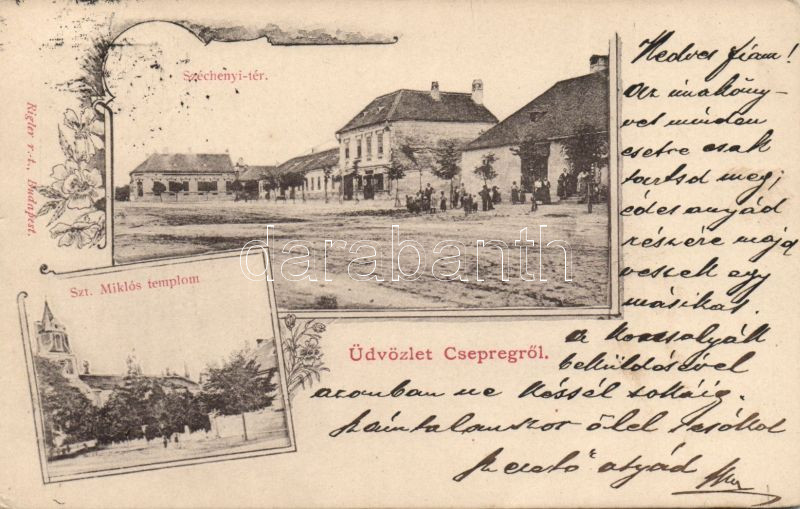 Széchenyi-tér.
Kedves fiam!
Az imaköny-
vet minden
esetre csak
tartsd meg;
édes anyád
részére majd
veszek egy
másikat.
a korsolyák
beküldésével
azonban ne késsél sokáig.
Számtalanszor ölel s csókol
szerető atyád
Rigler r.-t., Budapest.
Szt. Miklós templom
Üdvözlet Csepregről.
darabanth